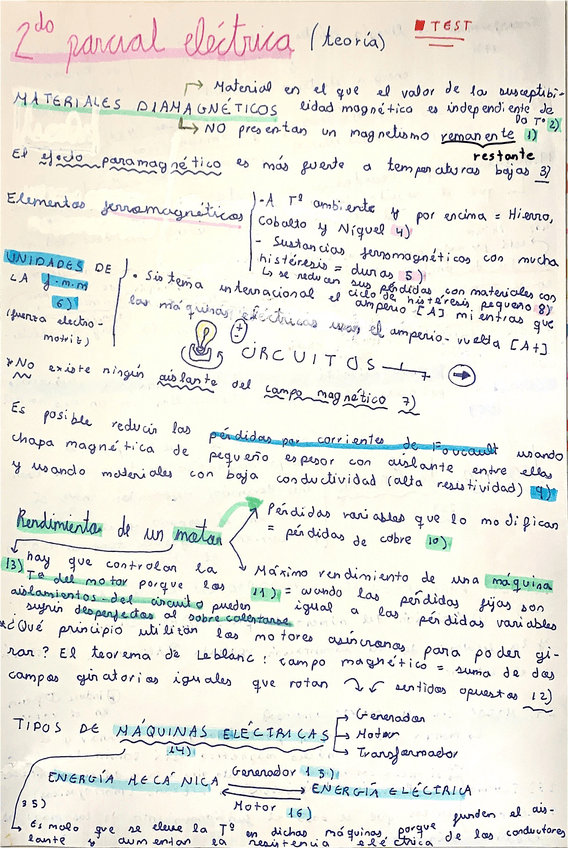 2do parcial eléctrica (teoría) ■ TEST
Material en el que el valor de la susceptibi-
MATERIALES DIAMAGNÉTICOS lidad magnética es independiente de
la Tª 2)
NO presentan un magnetismo remanente 1)
restante
El efecto paramagnético es más fuerte a temperaturas bajas 3)
Elementos ferromagnéticos
- A Tª ambiente y por encima = Hierro,
Cobalto y Níquel 4)
- Sustancias ferromagnéticas con mucha
histéresis = duras 5)
↳ se reducen sus pérdidas con materiales con
ciclo de histéresis pequeño 8)
UNIDADES DE
LA f.m.m
6)
(fuerza electro-
motriz)
• Sistema internacional el amperio [A] mientras que
las máquinas eléctricas usan el amperio-vuelta [A+]
CIRCUITOS
*No existe ningún aislante del campo magnético 7)
Es posible reducir las pérdidas por corrientes de Foucault usando
chapa magnética de pequeño espesor con aislante entre ellas
y usando materiales con baja conductividad (alta resistividad) 9)
Rendimiento de un motor
Pérdidas variables que lo modifican
= pérdidas de cobre 10)
Máximo rendimiento de una máquina
11) = cuando las pérdidas fijas son
igual a las pérdidas variables
13) hay que controlar la
Tª del motor porque los
aislamientos del circuito pueden
sufrir desperfectos al sobrecalentarse
*¿Qué principio utilizan los motores asíncronos para poder gi-
rar? El teorema de Leblanc: campo magnético = suma de dos
campos giratorios iguales que rotan sentidos opuestos 12)
TIPOS DE MÁQUINAS ELÉCTRICAS
14)
Generador
Motor
Transformador
ENERGÍA MECÁNICA Generador 15) ENERGÍA ELÉCTRICA
Motor 16)
35)
Es malo que se eleve la Tª en dichas máquinas, porque funden el ais-
lante y aumentan la resistencia eléctrica de los conductores